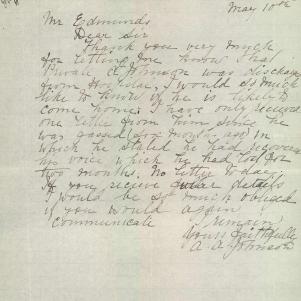 May 10th
Mr Edmunds
Dear Sir
Thank you very much
for letting me know that
Private was discharged
from Hospital, I would so much
like to know if he is likely to
come home. I have only received
one letter from him since he
was gassed (four months ago) in
which he stated he had recovered
his voice which he had lost for
two months. No letter today.
If you receive further details
I would be so much obliged
if you would again
communicate
I remain
Yours faithfully
A. A. Johnson